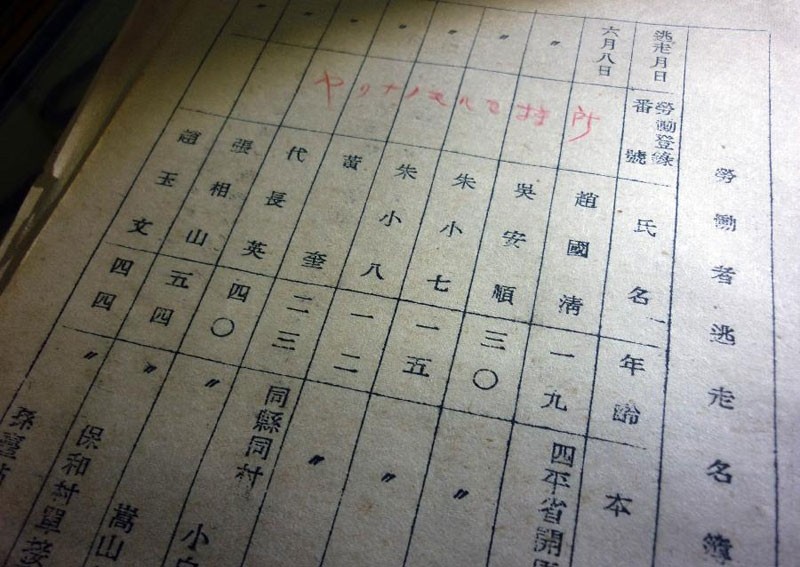 勞働者逃走名簿
逃走月日 勞働登錄番號 氏名 年齡 本
六月八日 趙國淸 一九 四平省開
〃 吳安順 三〇 〃
〃 朱小七 一五 〃
〃 朱小八 一二 〃
〃 黃奎 二三 同縣同村
〃 代長英 四〇 〃 小
〃 張相山 五四 〃 嵩山
趙玉文 四四 〃 保和村單
孫臺